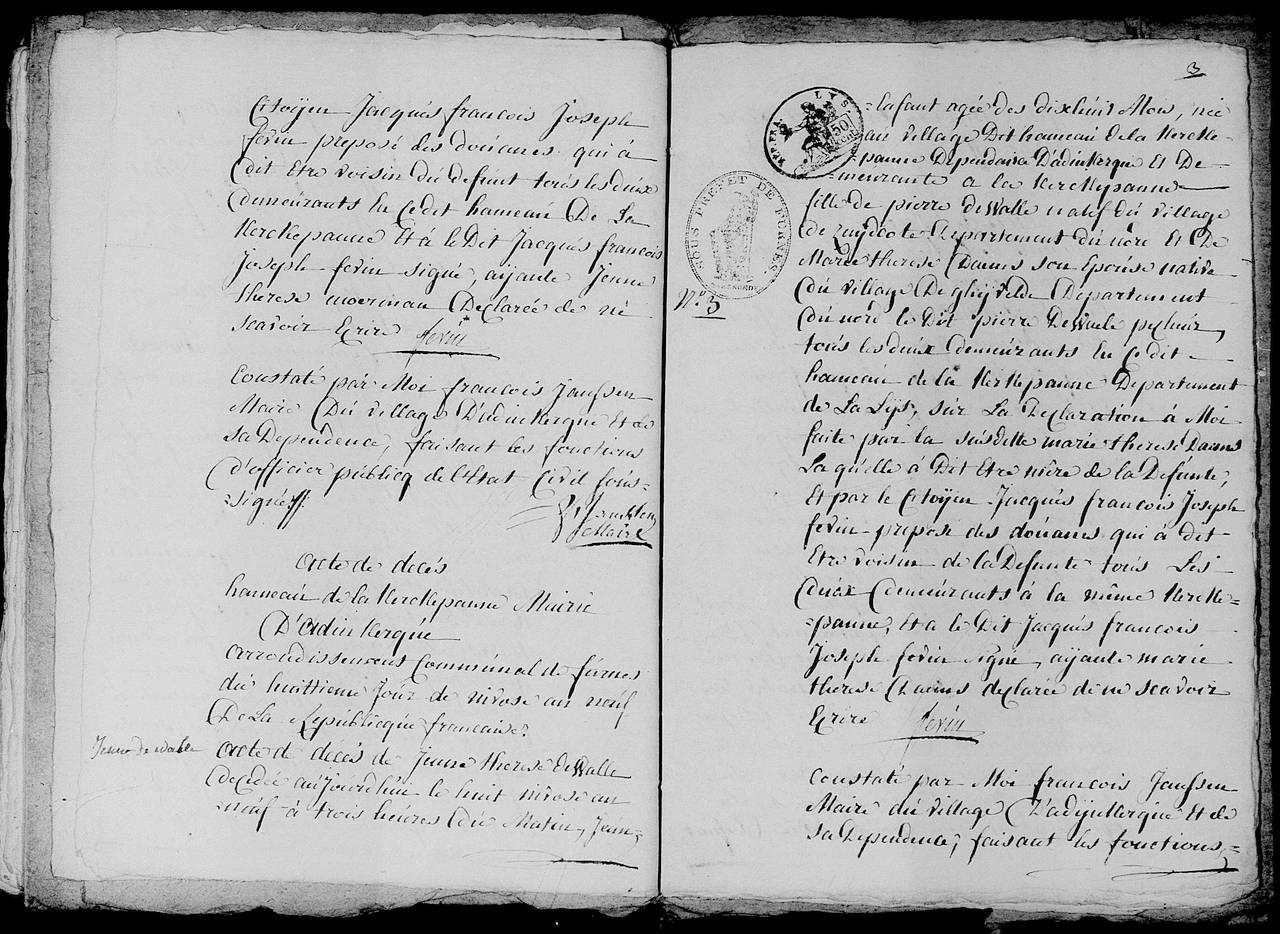 Citoyen Jacques francois Joseph
fevin preposé des douanes qui á
dit Etre voisin du defunt tous les deux
demeurants En Cedit hameau De La
Kerckepanne Et á le Dit Jacques francois
Joseph fevin signé, ayante Jenne
therese Declarée de ne
scavoir Ecrire fevin
Constaté par Moi francois Janssen
Maire Du village D'adinkerque Et de
sa Dependence, faisant les fonctions
d'officier publicq de l'Etat Civil sous-
-signé
Maire
Acte de decés
hameau de la Kerckepanne Mairie
D'Adinkerque
arrondissement Communal de furnes
du huittieme Jour de nivose an neuf
De La Republicque francaise
Jenne de walle
Acte de decés de Jenne therese deWalle
decedée aujourdhui le huit nivose an
neuf á trois heures du Matin, Jean-
3
LYS.
50
SOUS PREFET DE FURNES.
N.° 3
-Enfant agée des dixhuit Mois, née
au village Dit hameau de la Kercke-
-panne Dependance D'adinkerque Et De-
-meurante a la Kerckepanne
fille de pierre deWalle natif du village
de Zuydcote Departement du nord Et De
Marie therese Daims son Epouse native
du village De ghijvelde Departement
du nord le Dit pierre DeWaele pecheur,
tous les deux demeurants En Cedit
hameau de la Kerkepanne Departement
de La Lijs, sur La Declaration á Moi
faite par la susdette marie therese Daims
La quelle á Dit Etre mère de la Defunte,
Et par le Citoyen Jacques francois Joseph
fevin preposé des douanes qui á dit
Etre voisin de la Defunte tous Les
deux demeurants á la même Kercke-
-panne, Et a le Dit Jacques francois
Joseph fevin signe, ayante marie
therese Daims declarée de ne scavoir
Ecrire fevin
Constaté par Moi francois Janssen
Maire du village D'adijnkerque Et de
sa Dependence, faisant les fonctions,